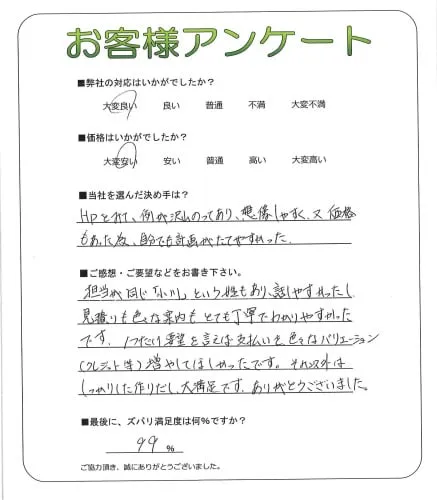 お客様アンケート
■弊社の対応はいかがでしたか？
大変良い 良い 普通 不満 大変不満
■価格はいかがでしたか？
大変安い 安い 普通 高い 大変高い
■当社を選んだ決め手は？
HPを見て、例が沢山のってあり、想像しやすく、又価格
もあった為、自分でも計画がたてやすかった。
■ご感想・ご要望などをお書き下さい。
担当が同じ「小川」という姓もあり、話しやすかったし
見積りも色々な案内も とても丁寧でわかりやすかった
です。 1つだけ要望を言えば支払いを色々なバリエーション
(クレジット等) 増やしてほしかったです。それ以外は
しっかりした作りだし、大満足です。ありがとうございました。
■最後に、ズバリ満足度は何%ですか？
99 %
ご協力頂き、誠にありがとうございました。